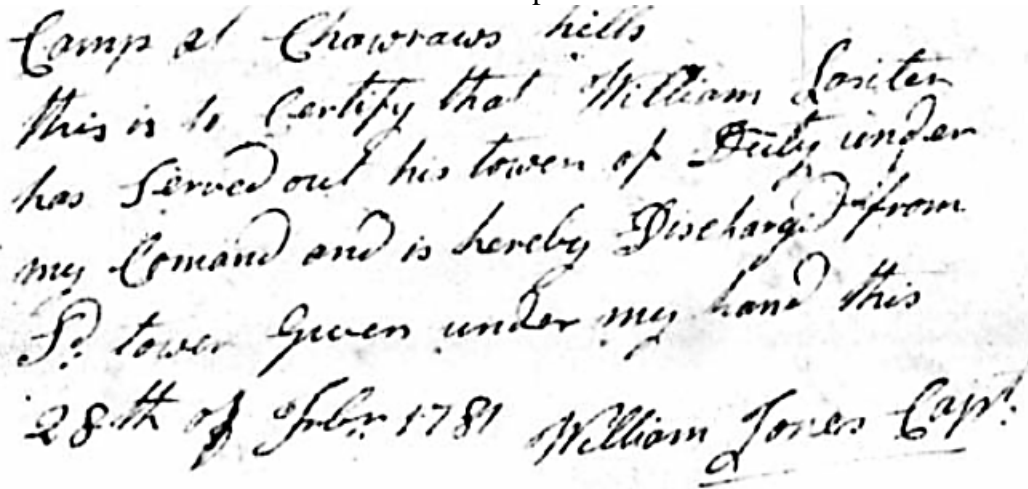 Camp at Chawraws hills
this is to Certify that William Lositer
has Served out his tower of Duty under
my Comand and is hereby Discharged from
Sd. tower Given under my hand this
28th of Febr. 1781 William Jones Capt.